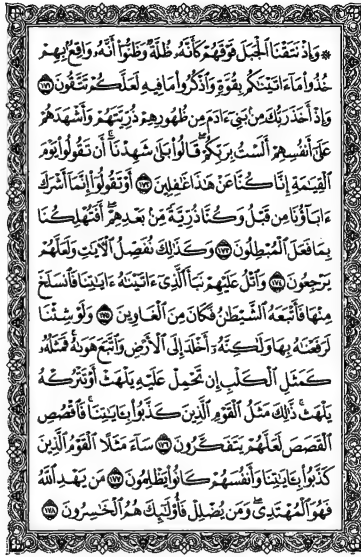 ۞ وَإِذْ نَتَقْنَا ٱلْجَبَلَ فَوْقَهُمْ كَأَنَّهُۥ ظُلَّةٌ وَظَنُّوٓا۟ أَنَّهُۥ وَاقِعٌۢ بِهِمْ
خُذُوا۟ مَآ ءَاتَيْنَٰكُم بِقُوَّةٍ وَٱذْكُرُوا۟ مَا فِيهِ لَعَلَّكُمْ تَتَّقُونَ ١٧١
وَإِذْ أَخَذَ رَبُّكَ مِنۢ بَنِىٓ ءَادَمَ مِن ظُهُورِهِمْ ذُرِّيَّتَهُمْ وَأَشْهَدَهُمْ
عَلَىٰٓ أَنفُسِهِمْ أَلَسْتُ بِرَبِّكُمْ ۖ قَالُوا۟ بَلَىٰ ۛ شَهِدْنَآ ۛ أَن تَقُولُوا۟ يَوْمَ
ٱلْقِيَٰمَةِ إِنَّا كُنَّا عَنْ هَٰذَا غَٰفِلِينَ ١٧٢ أَوْ تَقُولُوٓا۟ إِنَّمَآ أَشْرَكَ
ءَابَآؤُنَا مِن قَبْلُ وَكُنَّا ذُرِّيَّةً مِّنۢ بَعْدِهِمْ ۖ أَفَتُهْلِكُنَا
بِمَا فَعَلَ ٱلْمُبْطِلُونَ ١٧٣ وَكَذَٰلِكَ نُفَصِّلُ ٱلْءَايَٰتِ وَلَعَلَّهُمْ
يَرْجِعُونَ ١٧٤ وَٱتْلُ عَلَيْهِمْ نَبَأَ ٱلَّذِىٓ ءَاتَيْنَٰهُ ءَايَٰتِنَا فَٱنسَلَخَ
مِنْهَا فَأَتْبَعَهُ ٱلشَّيْطَٰنُ فَكَانَ مِنَ ٱلْغَاوِينَ ١٧٥ وَلَوْ شِئْنَا
لَرَفَعْنَٰهُ بِهَا وَلَٰكِنَّهُۥٓ أَخْلَدَ إِلَى ٱلْأَرْضِ وَٱتَّبَعَ هَوَىٰهُ ۚ فَمَثَلُهُۥ
كَمَثَلِ ٱلْكَلْبِ إِن تَحْمِلْ عَلَيْهِ يَلْهَثْ أَوْ تَتْرُكْهُ
يَلْهَث ۚ ذَّٰلِكَ مَثَلُ ٱلْقَوْمِ ٱلَّذِينَ كَذَّبُوا۟ بِـَٔايَٰتِنَا ۚ فَٱقْصُصِ
ٱلْقَصَصَ لَعَلَّهُمْ يَتَفَكَّرُونَ ١٧٦ سَآءَ مَثَلًا ٱلْقَوْمُ ٱلَّذِينَ
كَذَّبُوا۟ بِـَٔايَٰتِنَا وَأَنفُسَهُمْ كَانُوا۟ يَظْلِمُونَ ١٧٧ مَن يَهْدِ ٱللَّهُ
فَهُوَ ٱلْمُهْتَدِى ۖ وَمَن يُضْلِلْ فَأُو۟لَٰٓئِكَ هُمُ ٱلْخَٰسِرُونَ ١٧٨